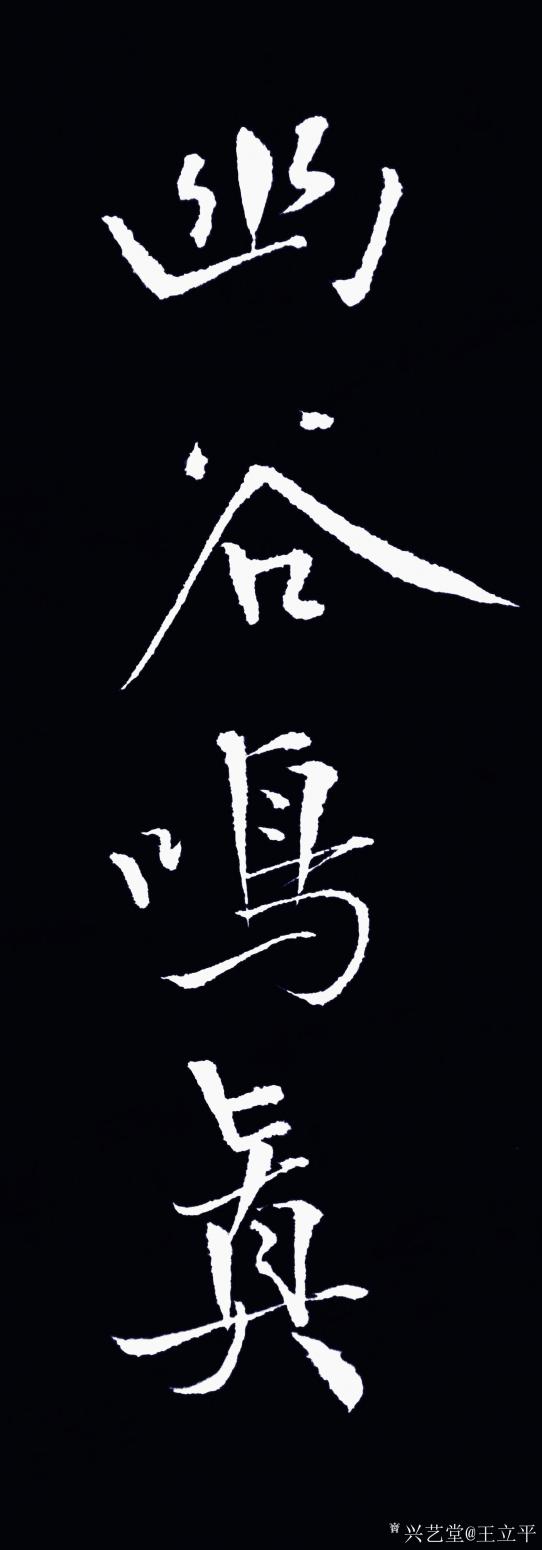 幽谷鳴真
兴艺堂@王立平